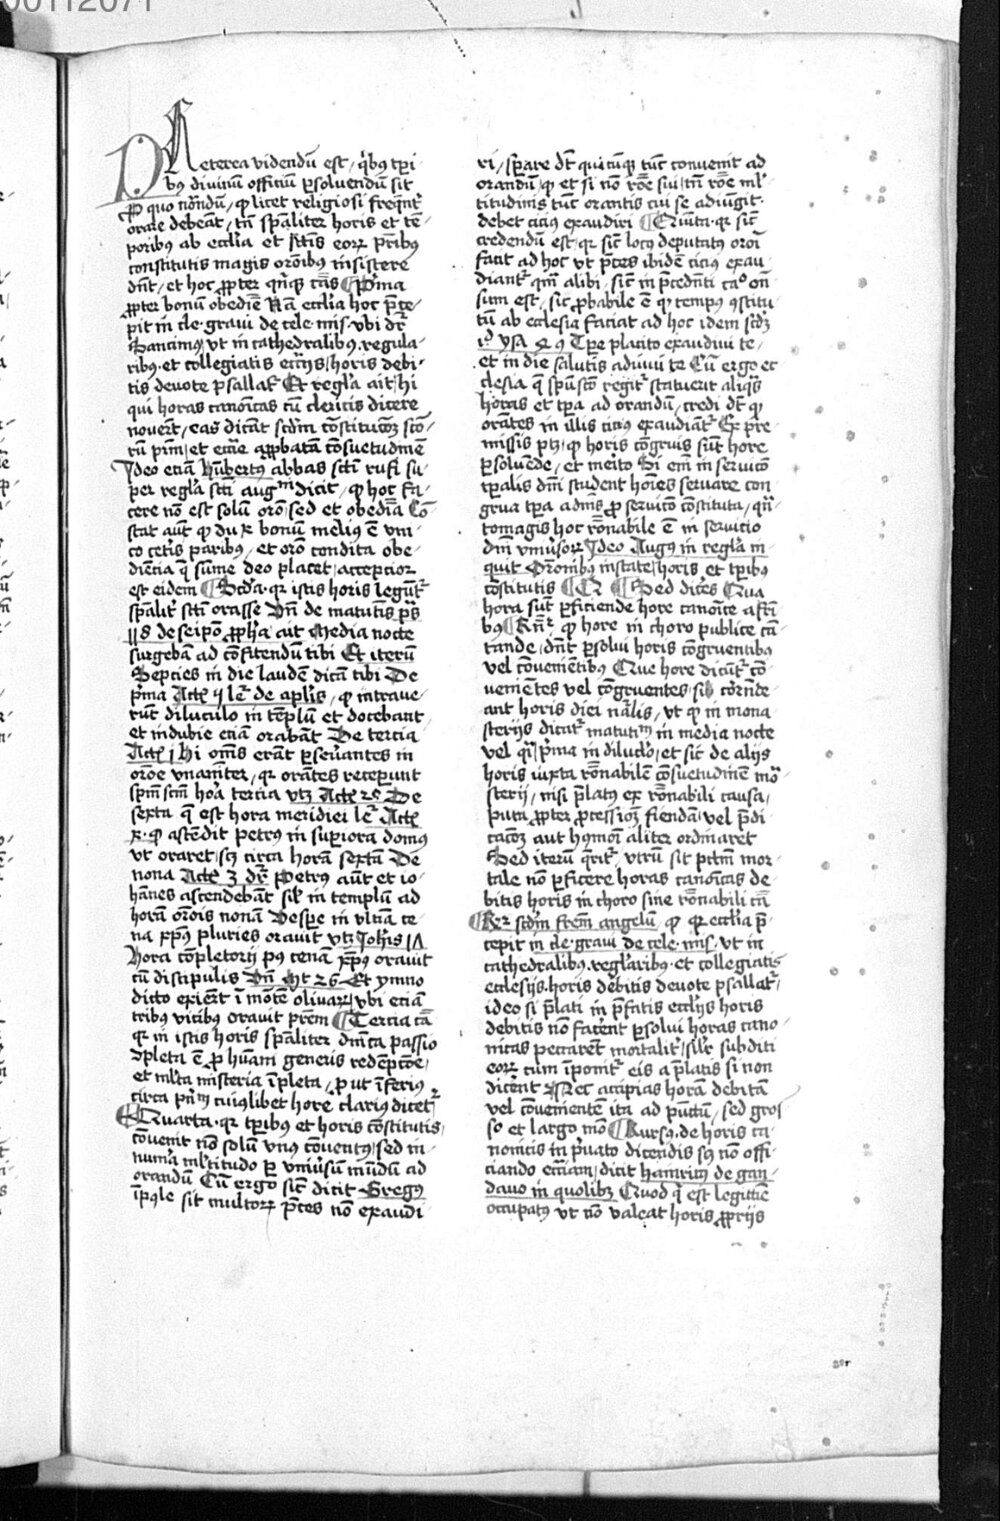 00112071
PReterea videndū est / qͥbꝰ tꝑi
bꝰ diuinū officiū ꝑsoluendū sit
ꝓ quo notandū / ꝙ licet religiosi freqn̄t͛
orare debeāt / tn̄ spāliter horis et tē
poribus ab ecclīa et sctīs eorꝝ pr̄ibꝰ
constitutis magis orōibꝰ insistere
dn̄t / et hoc ꝓpter qͥnqꝫ cās ¶ Pͥma
ꝓpter bonū obediē Nā ecclīa hoc p̄ce
pit in cle · graui de cele · mis · vbi dr̄
Sancimꝰ vt in cathedralibꝰ · regula
ribꝰ · et collegiatis ecctījs / horis debi
tis deuote psallat͛ Et regl̄a ait / hi
qui horas canonicas cū clericis dicere
nouerīt / eas dicāt scdm̄ cōstitucōꝫ sctō
rū pr̄m / et eccīe approbatā cōsuetudinē
Ideo etiā hūbertꝰ abbas sctī rufi su
per regl̄a sctī augᵐ dicit / ꝙ hoc fa
cere nō est solū orō / sed et obediā Cō
stat aūt ꝙ duꝝ bonū meliꝰ ē vni
co cetīs paribꝰ / et orō condita obe
diencia q̄ sūme deo placet / accepcior
est eidem ¶ Scd̄a · qꝛ istis horis legūt͛
spālit͛ sctī orasse Vn̄ de matutīs pˢ
118 de seipō ꝓphā ait Media nocte
surgebā ad cōfitendū tibi Et iterū
Sepcies in die laudē dixi tibi De
pͥma Actꝫ ij le͛ de aplīs / ꝙ intraue
rūt diluculo in tēplū et docebant
et indubie etiā orabāt De tercia
Actꝫ j hi om̄s erāt ꝑseuerantes in
orōe vnaniter / qꝛ orātes receperunt
spm̄ scm̄ horā tercia vtꝫ Actꝫ 2⁰ De
sexta q̄ est hora meridiei le͛ Actꝫ
x · ꝙ ascēdit petrus in supiora domꝰ
vt oraret / scꝫ circa horā sextā De
nona Actꝫ 3 dr̄ Petrus aūt et io
hānes ascendebāt sil̄ in templū ad
horā orōis nonā Vespe in vltīa ce
na xp̄us pluries orauit vtꝫ Johīs 17
Hora cōpletorij pꝰ cenā xp̄us orauit
cū discipulis Vn̄ Mt 26 Et ymno
dicto exierūt ī mōtē oliuarꝝ / vbi etiā
tribꝰ vicibꝰ orauit prēm ¶ Tercia cā
qꝛ in istis horis spāliter dn̄ica passio
īpleta ē ꝓ hūani generis redēpcōe /
et ml̄ta misteria īpleta / ꝓut īferiꝰ
circa pn̄ᵐ cuiuslibet hore clariꝰ dicet͛
¶ Quarta · qꝛ tꝑibꝰ et horis cōstitutis
cōuenit nō solū vnꝰ cōuentꝰ / sed in
nūa ml̄titudo ꝑ vniūsū mūdū ad
orandū Cū ergo sic̄ dicit Gregꝰ
īpl̄e sit multorꝝ pces nō exaudi
ri / spare dt̄ quicūqꝫ tūc conuenit ad
orandū / ꝙ et si nō rōe sui / tn̄ rōe ml̄
titudinis tūc orantis cui se adiūgit
debet cicius exaudiri ¶ Quīta · qꝛ sic̄
credendū est / qꝛ sic̄ locꝰ deputatꝰ orōi
facit ad hoc vt pces ibidē cicius exau
diant͛ qm̄ alibi / sic̄ in p̄cedn̄ti caᵒ on̄
sum est / sic ꝓbabile ē ꝙ tempꝰ ꝯstitu
tū ab ecclesia faciat ad hoc idem scdꝫ
id ysa 49 Tꝑe placito exaudiui te
et in die salutis adiuui te Cū ergo ec
clesia q̄ spū sctō regit͛ statuerit aliqͣs
horas et tꝑa ad orandū / credi dt̄ ꝙ
orātes in illis cicius exaudiāt͛ Ex pre
missis ptꝫ / ꝙ horis cōgruis sūt hore
ꝑsoluende / et merito Si em̄ in seruicō
tꝑalis dn̄i student hoīes seruare con
grua tꝑa adm̄s ꝓ seruicō cōstituta / qn̄
tomagis hoc rōnabile ē in seruicio
dn̄i vniūsorꝝ Ideo Augꝰ in regl̄a in
quit Orōnibꝰ instate / horis et tꝑibꝰ
cōstitutis ¶ ¶ ¶ Sed dices Qua
hora sūt ꝑficiende hore canoīce astī
bꝰ ¶ Rn̄͛ ꝙ hore in choro publice cā
tande / dn̄t ꝑsolui horis cōgruentibꝰ
vel cōuenientibꝰ Que hore dicūt͛ cō
uenientes vel cōgruentes / si corn̄de
ant horis diei nālis / vt ꝙ in mona
sterijs dicat͛ matutᵐ in media nocte
vel qͣi / pͥma in dilucl̄o / et sic de alijs
horis iuxta rōnabilē cōsuetudinē mō
sterij / nisi p̄latꝰ ex rōnabili causa /
puta ꝓpter ꝓcessiōꝫ fiendā / vel p̄di
cacōꝫ aut hꝰmōi aliter ordinaret
Sed iterū qͣrit͛ / vtrū sit pctm̄ mor
tale nō ꝑficere horas canoīcas de
bitis horis in choro sine rōnabili cā
¶ Rꝛ scdm̄ frēm angelū / ꝙ qꝛ ecclīa p̄
cepit in cle · graui de cele · mis · vt in
cathedralibꝰ · regl̄aribꝰ · et collegiatis
ecclesijs · horis debitis deuote psallat͛ /
ideo si p̄lati in p̄fatis eccl̄ijs horis
debitis nō facerēt ꝑsolui horas cano
nicas peccarēt mortalit͛ / sil̄r subditi
eorꝝ cum īponit͛ eis a p̄latis si non
dicerēt Nec accipias horā debitā
vel cōuenientē ita ad pūctū / sed gros
so et largo mō ¶ Rursꝰ · de horis ca
nonicis in pͥuato dicendis scꝫ nō offi
ciando ecciam / dicit hainricꝰ de gan
dauo in quolibꝫ Quod q̄ est legittie
occupatꝰ vt nō valeat horis ꝓprijs